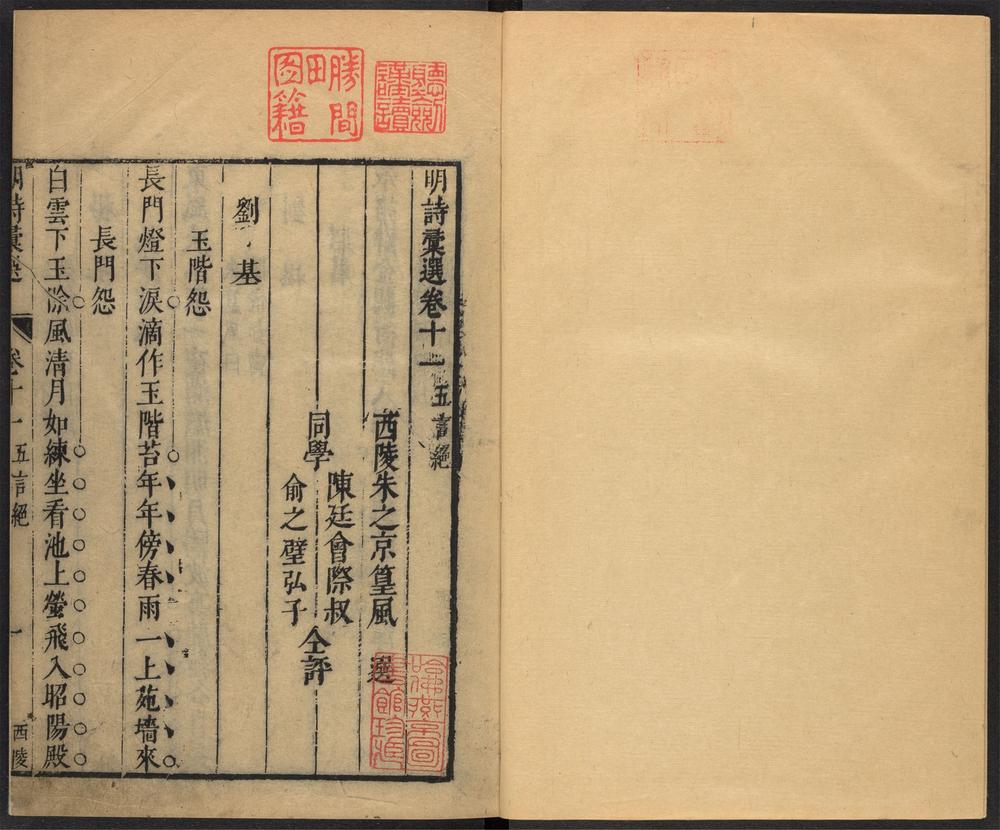 明詩彚選卷十一 五言絕
西陵朱之京篁風 選
陳廷會際叔
同學 仝評
俞之璧弘子
劉基
玉階怨
長門燈下淚滴作玉階苔年年傍春雨一上苑墻來
長門怨
白雲下玉除風清月如練坐看池上螢飛入昭陽殿
明詩彚選 卷十一 五言絕 一 西陵
勝間田圖籍
聽劍謹讀
哈佛燕京圖書館珍藏